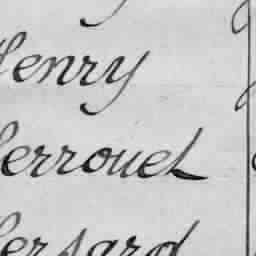 Henry
errouet
ersard